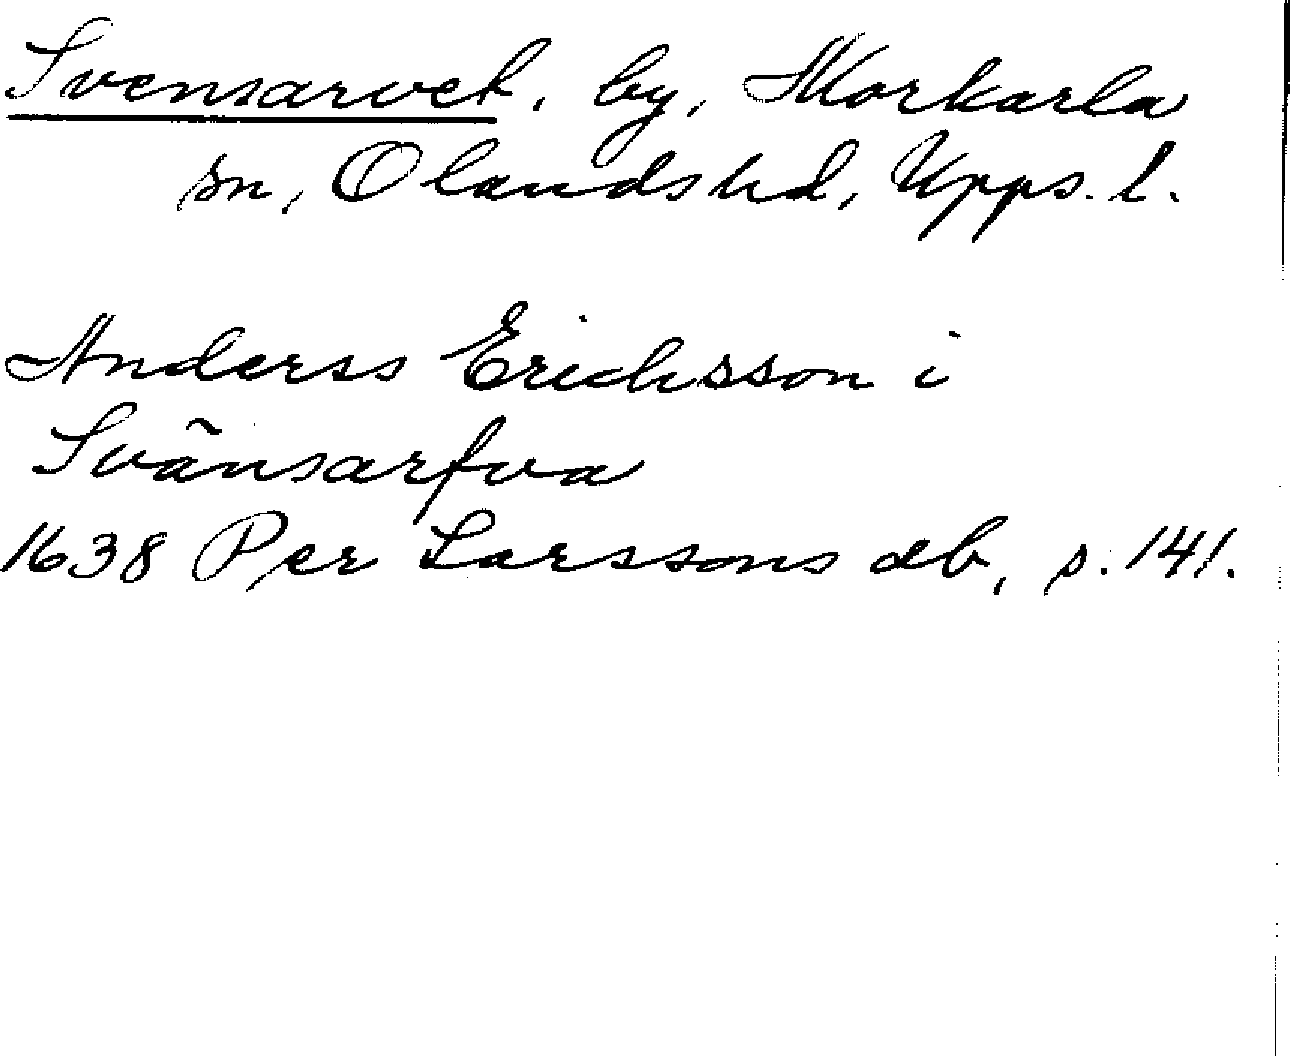 Svensarvet, by, Morkarla
sn, Olandshd, Upps. l.
Anderss Erichsson i
Svänsarfva
1638 Per Larssons db, s. 141.